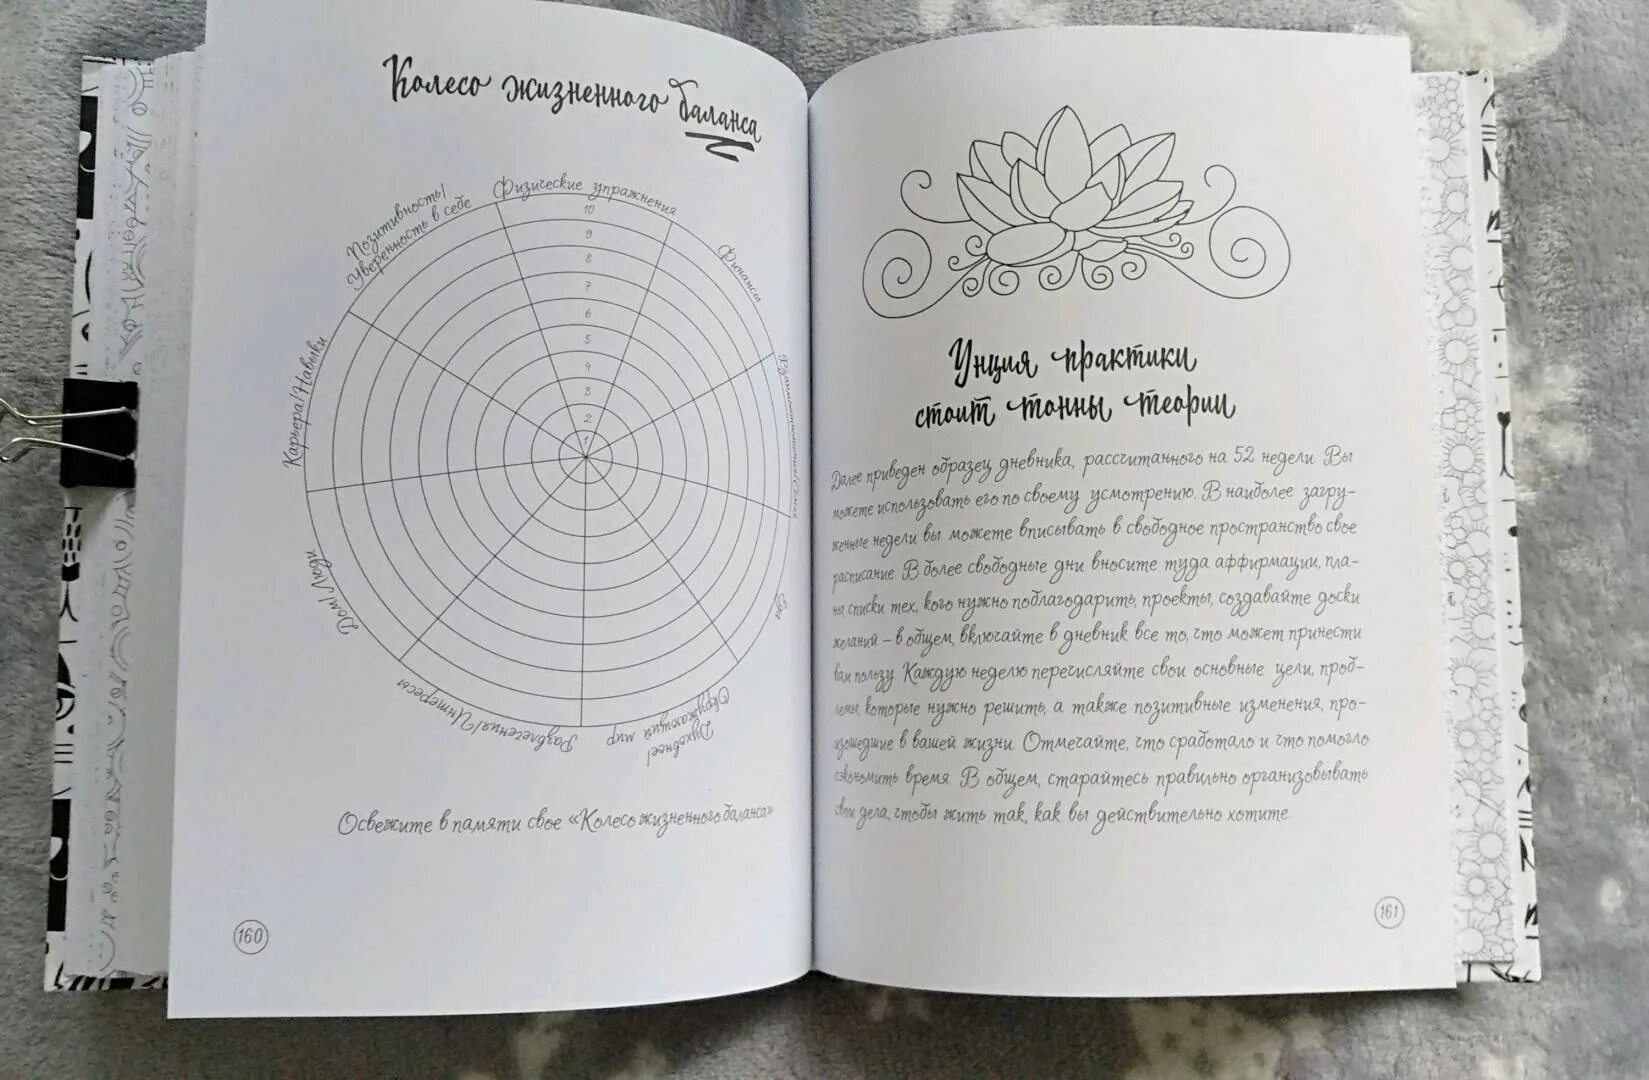 Колесо жизненного баланса
Позитивность/
Уверенность в себе
Физические упражнения
Финансы
Взаимоотношения/Семья
Еда
Духовное/
Окружающий мир
Развлечения/Интересы
Дом/Люди
Карьера/Навыки
10
9
8
7
6
5
4
3
2
1
Освежите в памяти свое «Колесо жизненного баланса»
160
Унция практики
стоит тонны теории
Далее приведен образец дневника, рассчитанного на 52 недели. Вы
можете использовать его по своему усмотрению. В наиболее загру-
женные недели вы можете вписывать в свободное пространство свое
расписание. В более свободные дни вносите туда аффирмации, пла-
ны, списки тех, кого нужно поблагодарить, проекты, создавайте доски
желаний – в общем, включайте в дневник все то, что может принести
вам пользу. Каждую неделю перечисляйте свои основные цели, проб-
лемы, которые нужно решить, а также позитивные изменения, про-
изошедшие в вашей жизни. Отмечайте, что сработало и что помогло
сэкономить время. В общем, старайтесь правильно организовывать
свои дела, чтобы жить так, как вы действительно хотите.
161